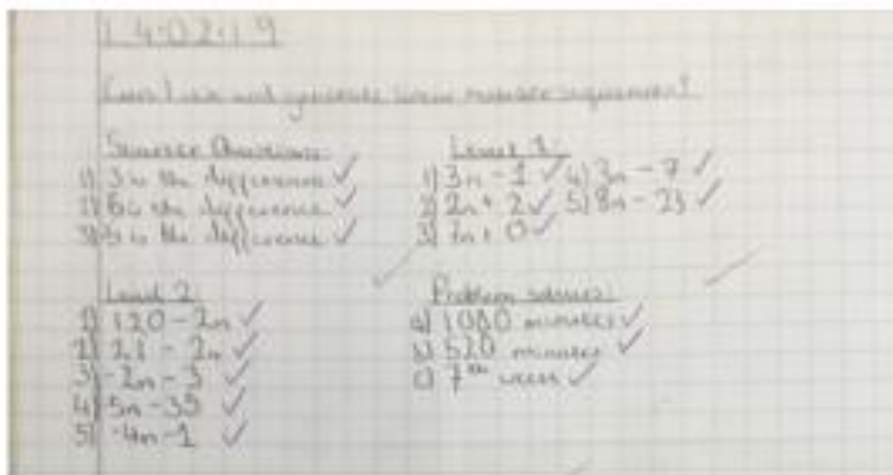 14.02.19
Can I use and generate linear number sequences?
Starter Questions:
1) 3 is the difference ✓
2) 6 is the difference ✓
3) 5 is the difference ✓
Level 1:
1) 3n - 1 ✓ 4) 3n - 7 ✓
2) 2n + 2 ✓ 5) 8n - 23 ✓
3) 7n + 0 ✓
Level 2
1) 120 - 2n ✓
2) 21 - 2n ✓
3) -2n - 3 ✓
4) 5n - 35 ✓
5) -4n - 1 ✓
Problem
a) 1080 minutes ✓
b) 520 minutes ✓
c) 7th week ✓